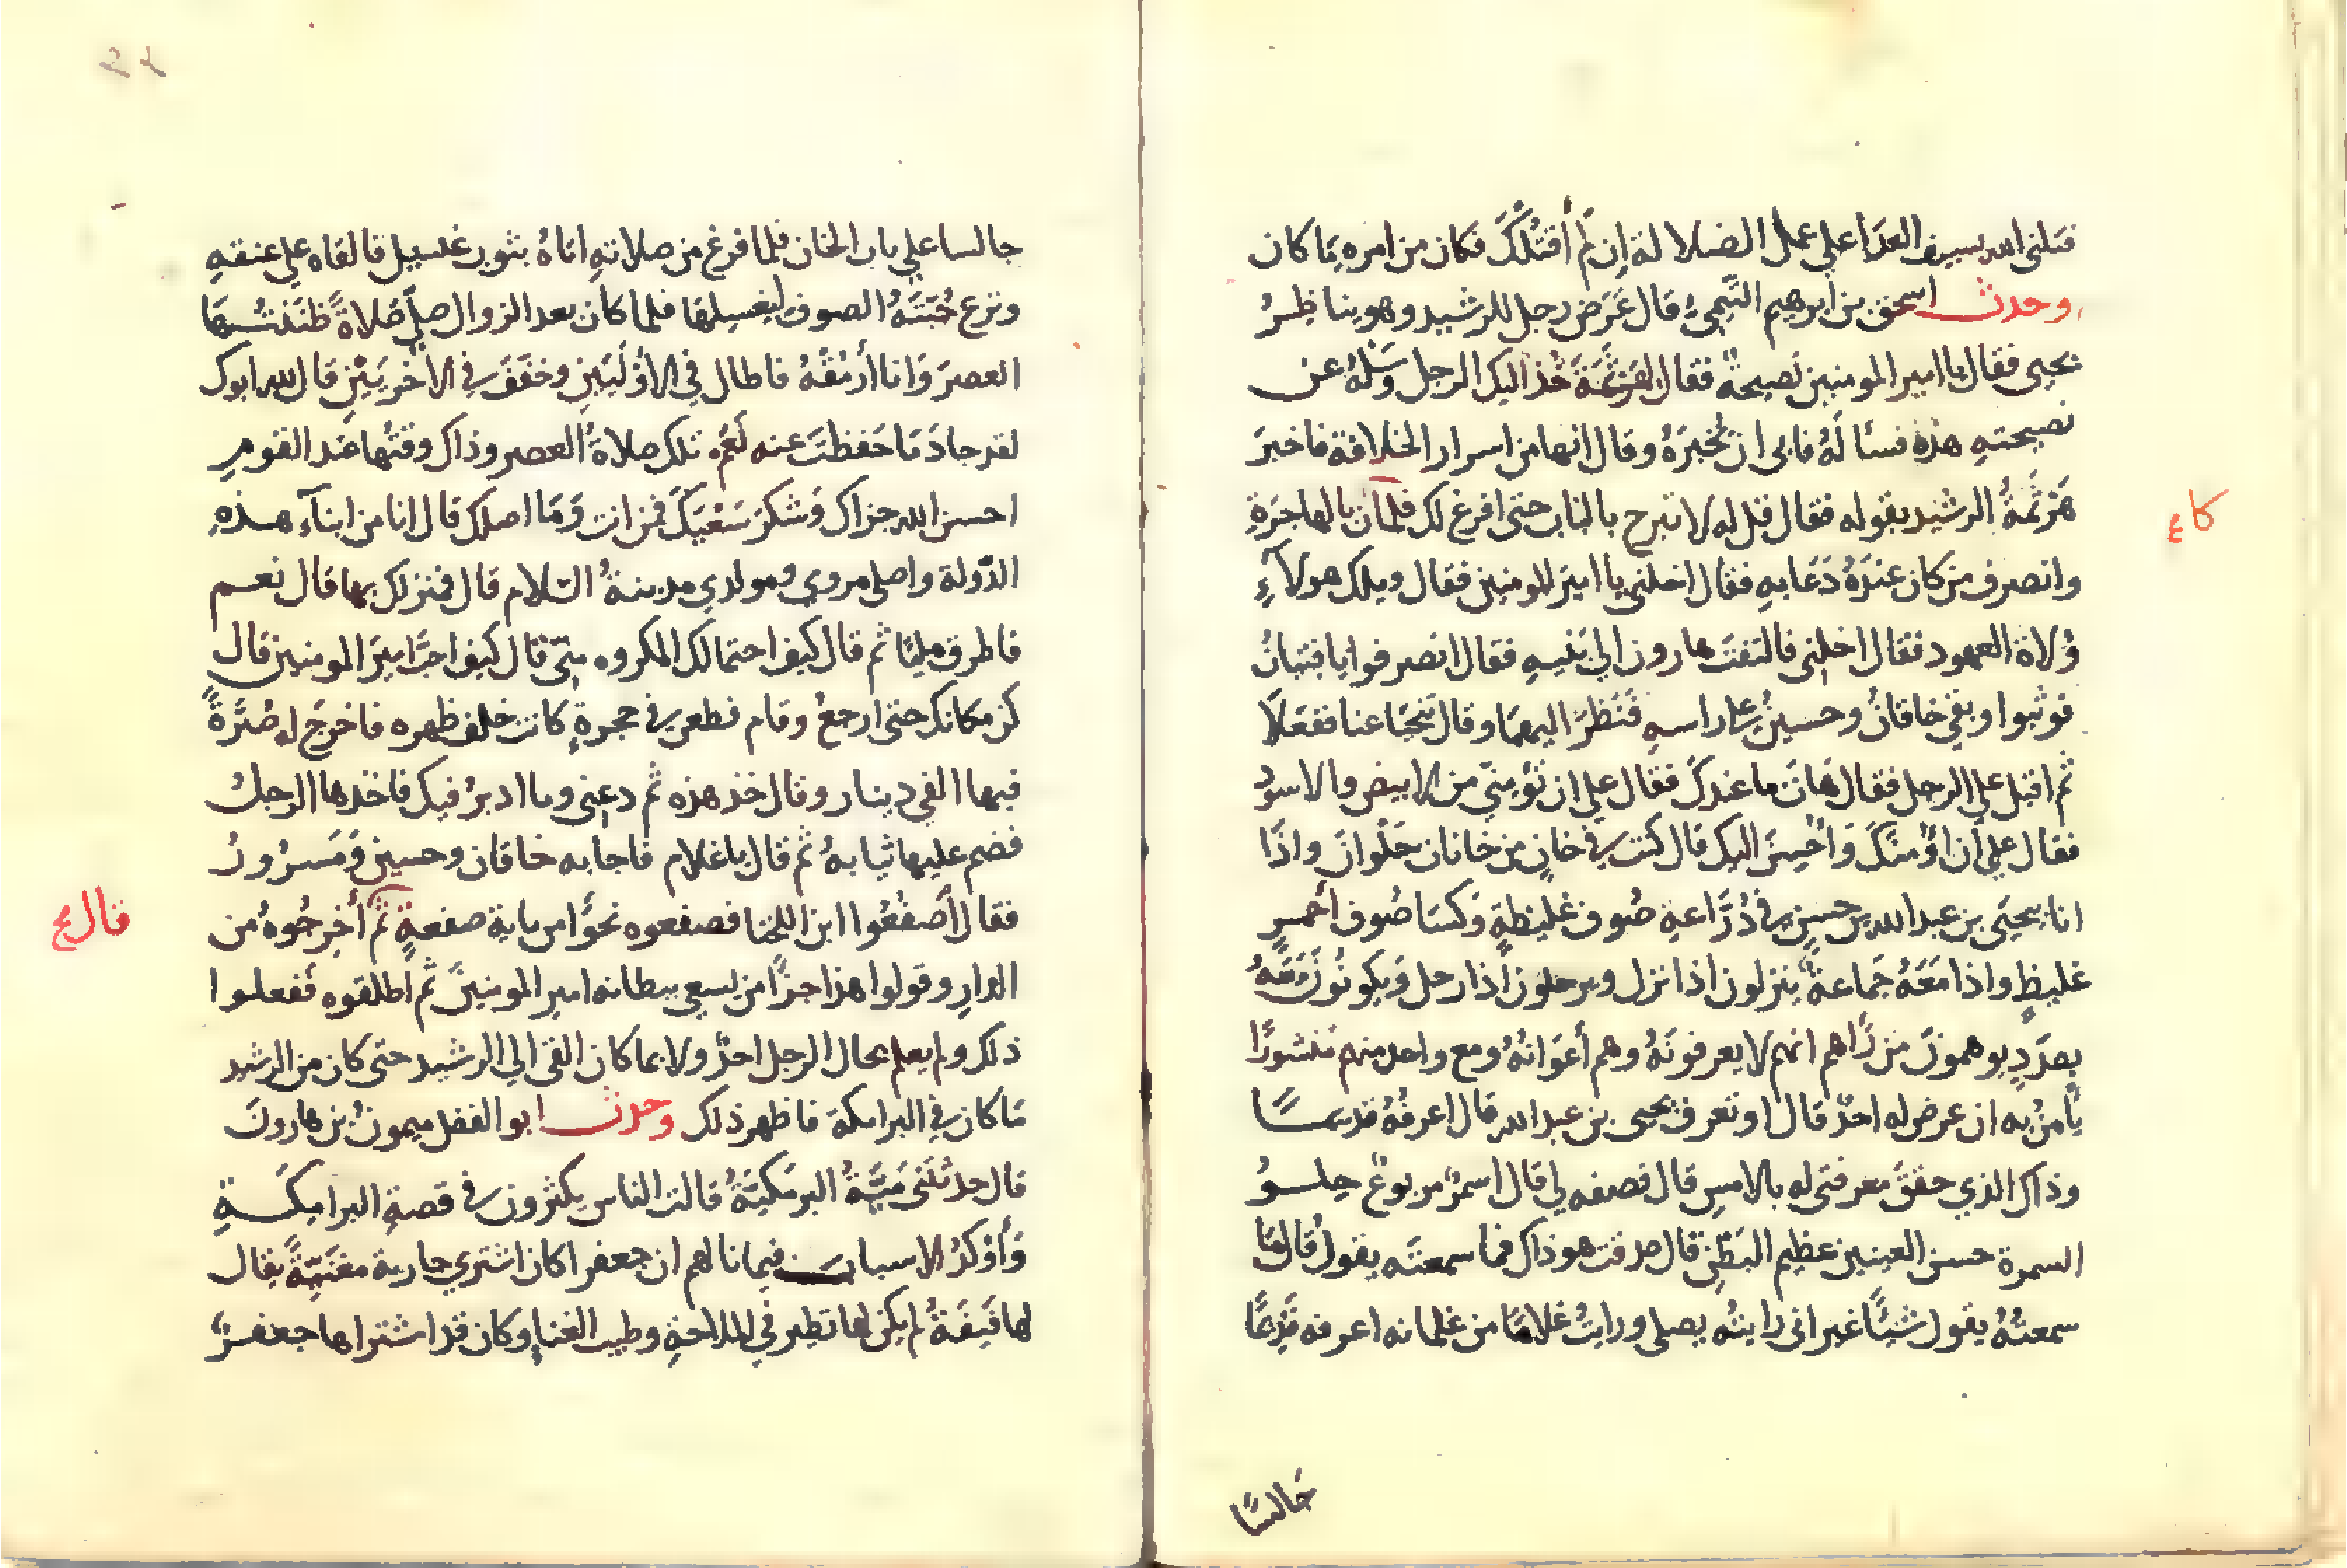 قتلنى الله بسيف العدا على عمل الضلالة إن لم أقتلك فكان من امره ما كان
وحدث اسحق بن ابرهيم التيمي قال عرض رجل للرشيد وهو يناظر
يحيى فقال يا امير المومنين نصيحة فقال لهرثمة خذ اليك الرجل وسله عن
نصيحته هذه فسأله فابى ان يخبره وقال انها من اسرار الخلافة فاخبر
هرثمة الرشيد بقوله فقال قل له لا تبرح بالباب حتى افرغ لك فلما كان بالهاجرة
وانصرف من كان عنده دعا به فقال اخلنى يا امير المومنين فقال ويلك هولآء
ولاة العهود فقال اخلنى فالتفت هارون الى بنيه فقال انصرفوا يا فتيان
فوثبوا وبقى خاقان وحسين على راسه فنظر اليهما وقال تنحيا عنا ففعلا
ثم اقبل على الرجل فقال هات ما عندك فقال على ان تؤمنى من الابيض والاسود
فقال على أن اؤمنك وأحسن اليك قال كنت فى خان من خانات حلوان واذا
انا بيحيى بن عبد الله بن حسن فى دراعة صوف غليظة وكسا صوف أحمر
غليظ واذا معه جماعة ينزلون اذا نزل ويرحلون اذا رحل ويكونون معه
بصدد يوهمون من رآهم انهم لا يعرفونه وهم أعوانه ومع واحد منهم منشورا
يأمن به ان عرض له احد قال او تعرف يحيى بن عبد الله قال اعرفه قديما
وذاك الذي حقق معرفتى له بالامس قال فصفه لى قال اسمر مربوع حلو
السمرة حسن العينين عظيم البطن قال صدقت هو ذاك فما سمعته يقول قال ما
سمعته يقول شيئا غير انى رايته يصلى ورايت غلاما من غلمانه اعرفه قديما
جالسا
جالسا على باب الخان فلما فرغ من صلاته اتاه بثوب غسيل فالقاه على عنقه
ونزع جبته الصوف ليغسلها فلما كان بعد الزوال صلى صلاة ظننتها
العصر وانا أرمقه فاطال في الاوليين وخفف في الاخريين قال لله ابوك
لقد جاد ما حفظت عنه نعم تلك صلاة العصر وذاك وقتها عند القوم
احسن الله جزاك وشكر سعيك فمن انت وما اصلك قال انا من ابنآء هذه
الدولة واصلى مروي ومولدي مدينة السلام قال فمنزلك بها قال نعم
فاطرق مليا ثم قال كيف احتمالك لمكروه منى قال كيف احب امير المومنين قال
كن مكانك حتى ارجع وقام فطعن فى حجرة كانت خلف ظهره فاخرج له صرة
فيها الفى دينار وقال خذ هذه ثم دعنى وما ادبر فيك فاخذها الرجل
فضم عليها ثيابه ثم قال يا غلام فاجابه خاقان وحسين ومسرور
فقال أصفعوا ابن اللخنا فصفعوه نحوا من ماية صفعة ثم أخرجوه من
الدار وقولوا هذا جزا من يسعى ببطانه امير المومنين ثم اطلقوه ففعلوا
ذلك ولم يعلم بحال الرجل احد ولا بما كان القى الى الرشيد حتى كان من الرشيد
ما كان في البرامكة فاظهر ذلك وحدث ابو الفضل ميمون بن هارون
قال حدثتنى مية البرمكية قالت الناس يكثرون فى قصة البرامكة
وأوكد الاسباب فيما نالهم ان جعفرا كان اشترى جارية مغنية يقال
لها فتيفة لم يكن لها نظير في الملاحة وطيب الغنا وكان قد اشتراها جعفر
قال